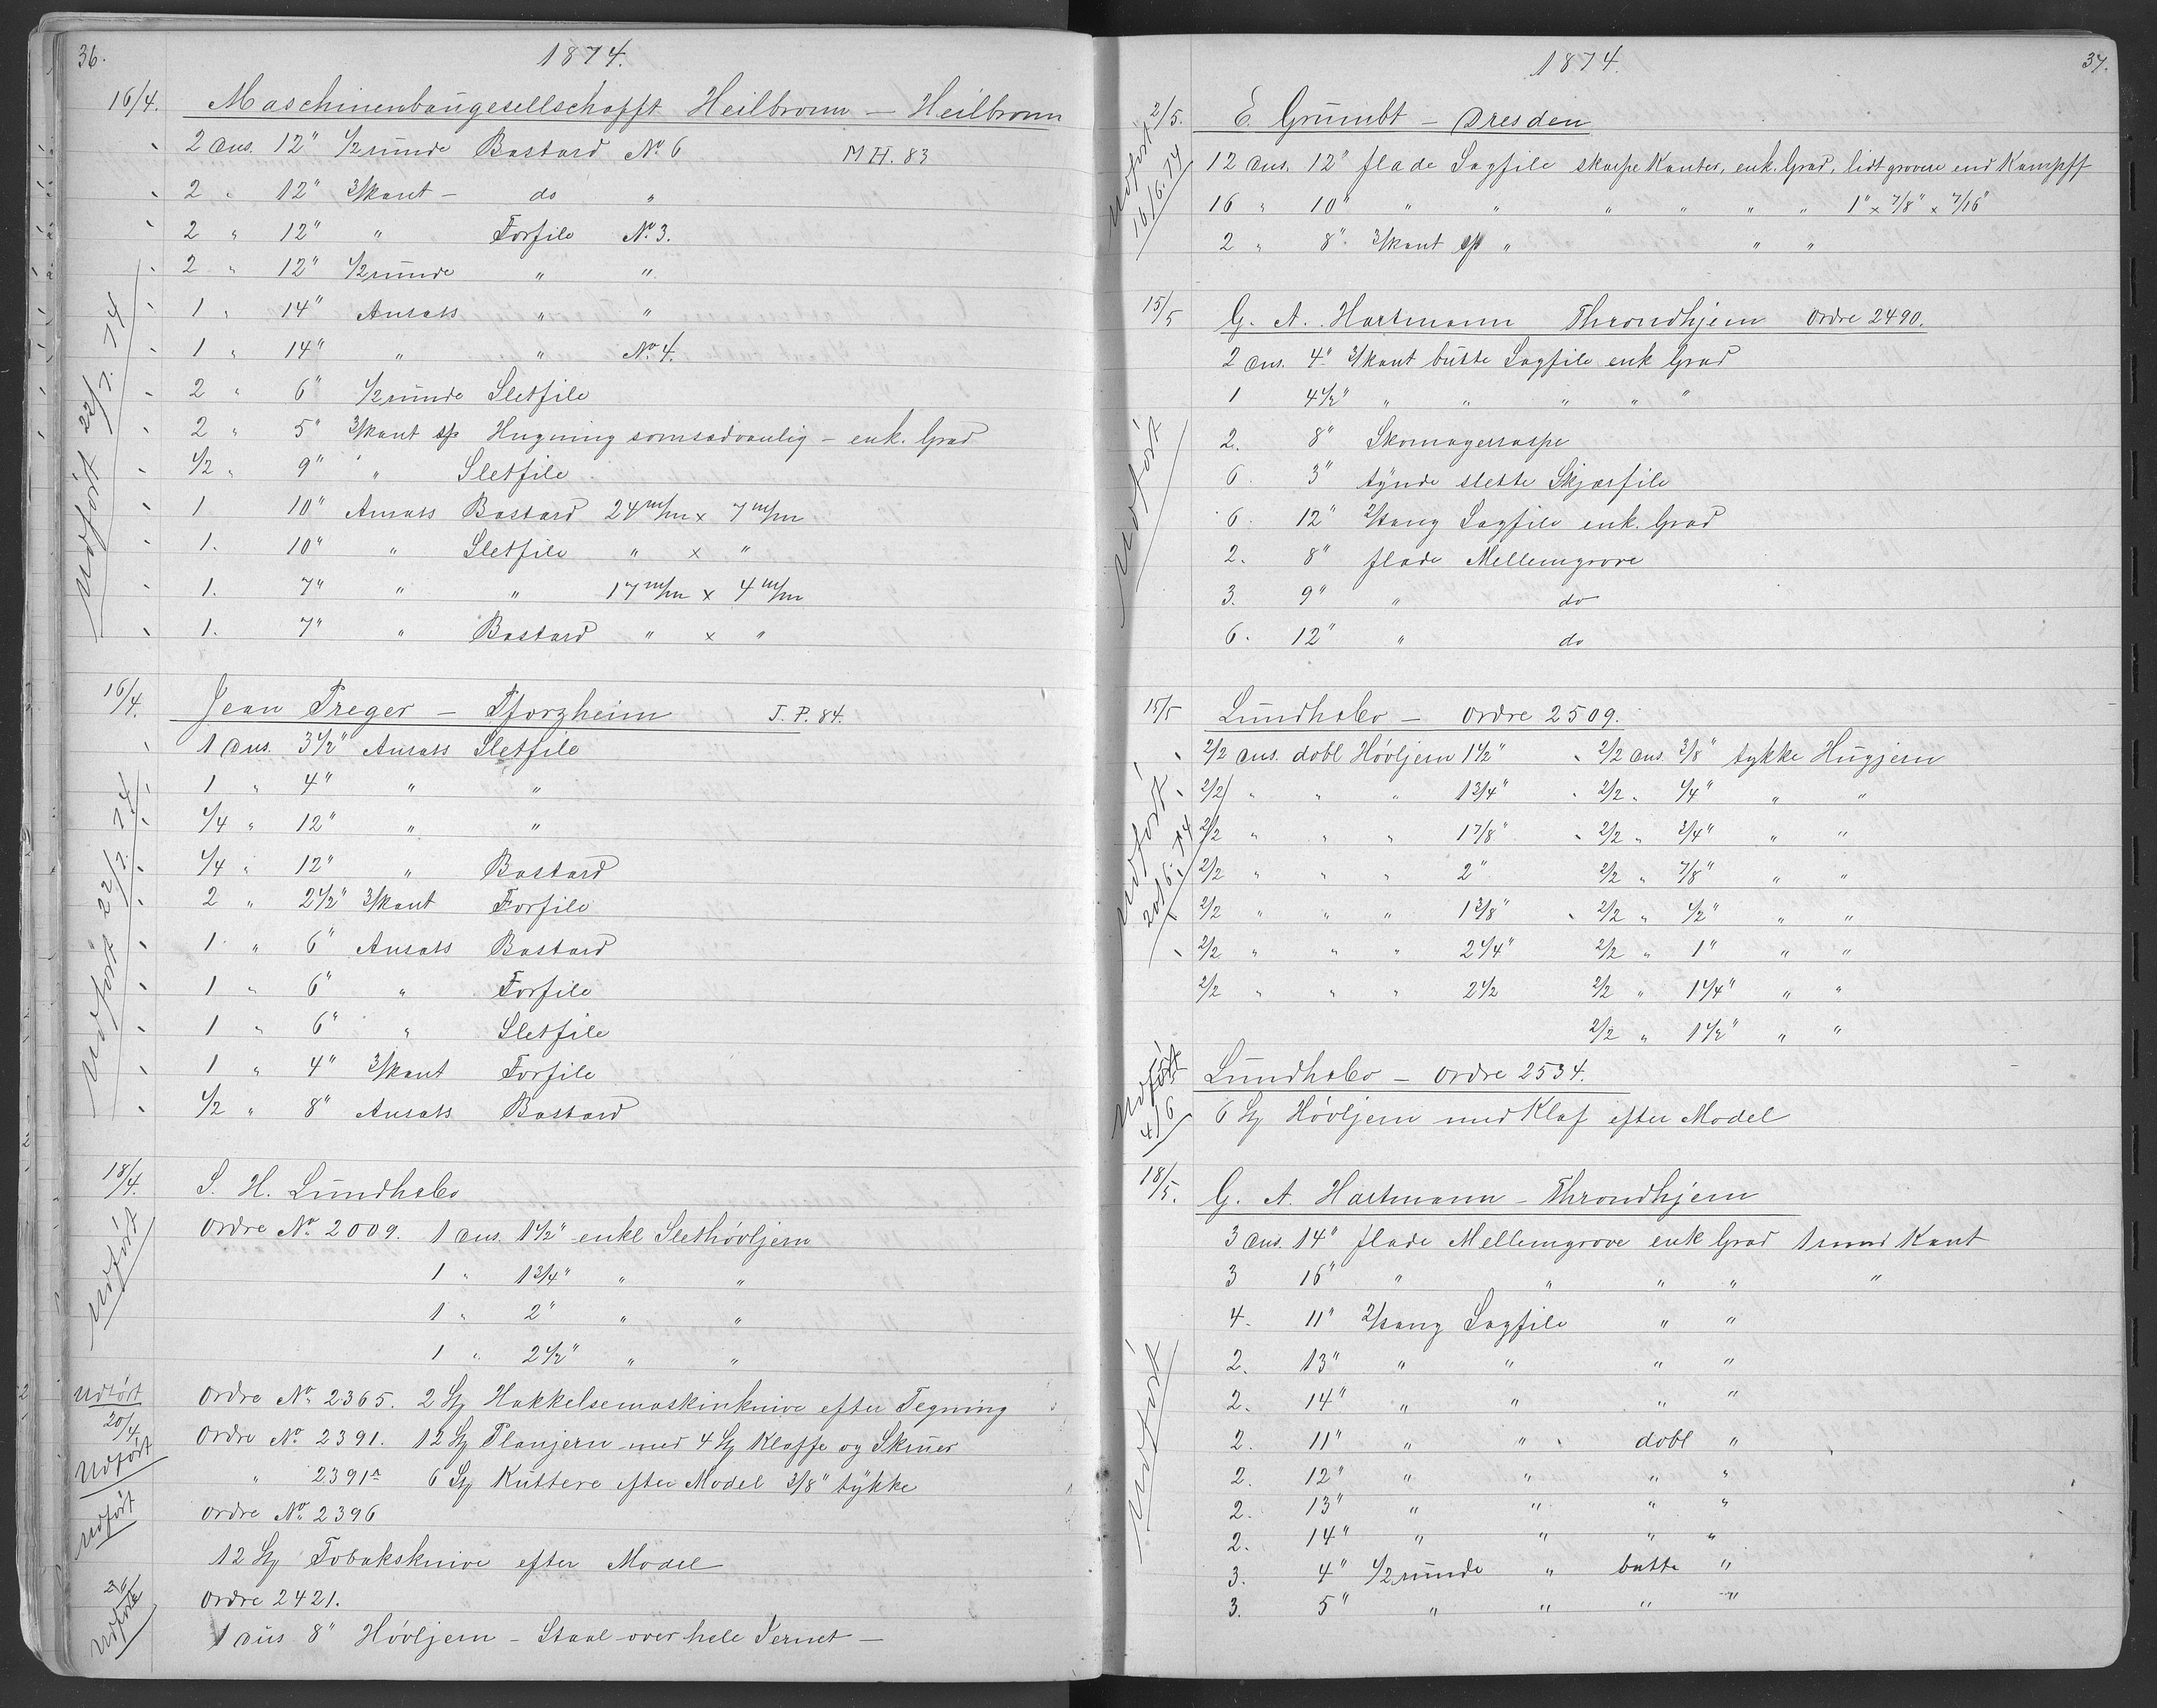 36.
1874.
16/4. Maschinenbaugesellschafft Heilbronn — Heilbronn
2 Dus. 12" 1/2 runde Bastard No. 6 M H. 83
2 " 12" 3/kant — do "
2 " 12" " Forfile No. 3.
2 " 12" 1/2 runde " "
1 " 14" Ansats " "
1 " 14" " " No. 4.
2 " 6" 1/2 runde Sletfile
2 " 5" 3/kant sp Hugning somsædvanlig — enk. Grad
1/2 " 9" " Sletfile
1 10" Ansats Bastard 24 m/m x 7 m/m
1. 10" " Sletfile " x "
1. 7" " " 17 m/m x 4 m/m
1. 7" " Bastard " x "
Udført 22/7. 74
16/4. Jean Preger — Pforzheim J. P. 84.
1 Dus. 3 1/2" Ansats Sletfile
1 " 4" " "
1/4 " 12" " "
1/4 " 12" " Bastard
2 " 2 1/2" 3/kant Forfile
1 " 6" Ansats Bastard
1 " 6" " Forfile
1 " 6" " Sletfile
1 " 4" 3/kant Forfile
1/2 " 8" Ansats Bastard
Udført 22/7. 74
18/4. S. H. Lundh
Ordre No. 2009. 1 Dus. 1 1/2" enkl Slethøvljern
1 " 1 3/4" " "
1 " 2" " "
1 " 2 1/2" " "
Udført
Udført 20/4. Ordre No. 2365. 2 St Hakkelsemaskinknive efter Tegning
Udført Ordre No. 2391. 12 St Planjern med 4 St Klaffe og Skruer
" 2391 A 6 St Kuttere efter Model 3/8" tykke
Udført Ordre No. 2396
12 St Tobaksknive efter Model
Udført Ordre 2421.
1 Dus 8" Høvljern — Staal over hele Jernet —
1874.
37.
2/5. E. Grumbt — Dresden
12 Dus. 12" flade Sagfile skarpe Kanter, enk. Grad, lidt grovere end Kampff
16 " 10" " " " " " " 1" x 7/8" x 7/16"
2 " 8" 3/kant sp " " "
Udført 16/6. 74
15/5 G. A. Hartmann Throndhjem Ordre 2490.
2 Dus. 4" 3/kant butte Sagfile enk Grad
1 4 1/2" " " " " "
2. 8" Skomagerraspe
6. 3" tynde slette Skjærfile
6. 12" 2/tang Sagfile enk. Grad
2. 8" flade Mellemgrove
3. 9" " do
6. 12" " do
Udført
15/5 Lundh — Ordre 2509.
2/2 Dus. dobl Høvljern 1 1/2" 2/2 Dus. 3/8" tykke Hugjern
2/2 " " " 1 3/4" 2/2 " 1/4" " "
2/2 " " " 1 7/8" 2/2 " 3/4" " "
2/2 " " " 2" 2/2 " 7/8" " "
2/2 " " " 1 3/8" 2/2 " 1/2" " "
2/2 " " " 2 1/4" 2/2 " 1" " "
2/2 " " " 2 1/2 2/2 " 1 1/4" " "
2/2 " 1 1/2" " "
Udført 20/6. 74
Lundh — Ordre 2534.
6 St Høvljern med Klaf efter Model
Udført 4/6
18/5. G. A. Hartmann — Throndhjem
3 Dus. 14" flade Mellemgrove enk Grad 1 rund Kant
3 16" " " " " "
4. 11" 2/tang Sagfile " "
2. 13" " " " "
2. 14" " " " "
2. 11" " " dobl "
2. 12" " " " "
2. 13" " " " "
2. 14" " " " "
3. 4" 1/2 runde " butte "
3. 5" " " " "
Udført